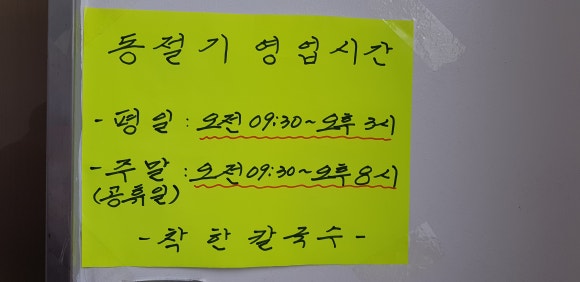 동절기 영업시간
- 평일 : 오전 09:30~오후 3시
- 주말 : 오전 09:30~오후 8시
(공휴일)
- 착한칼국수 -